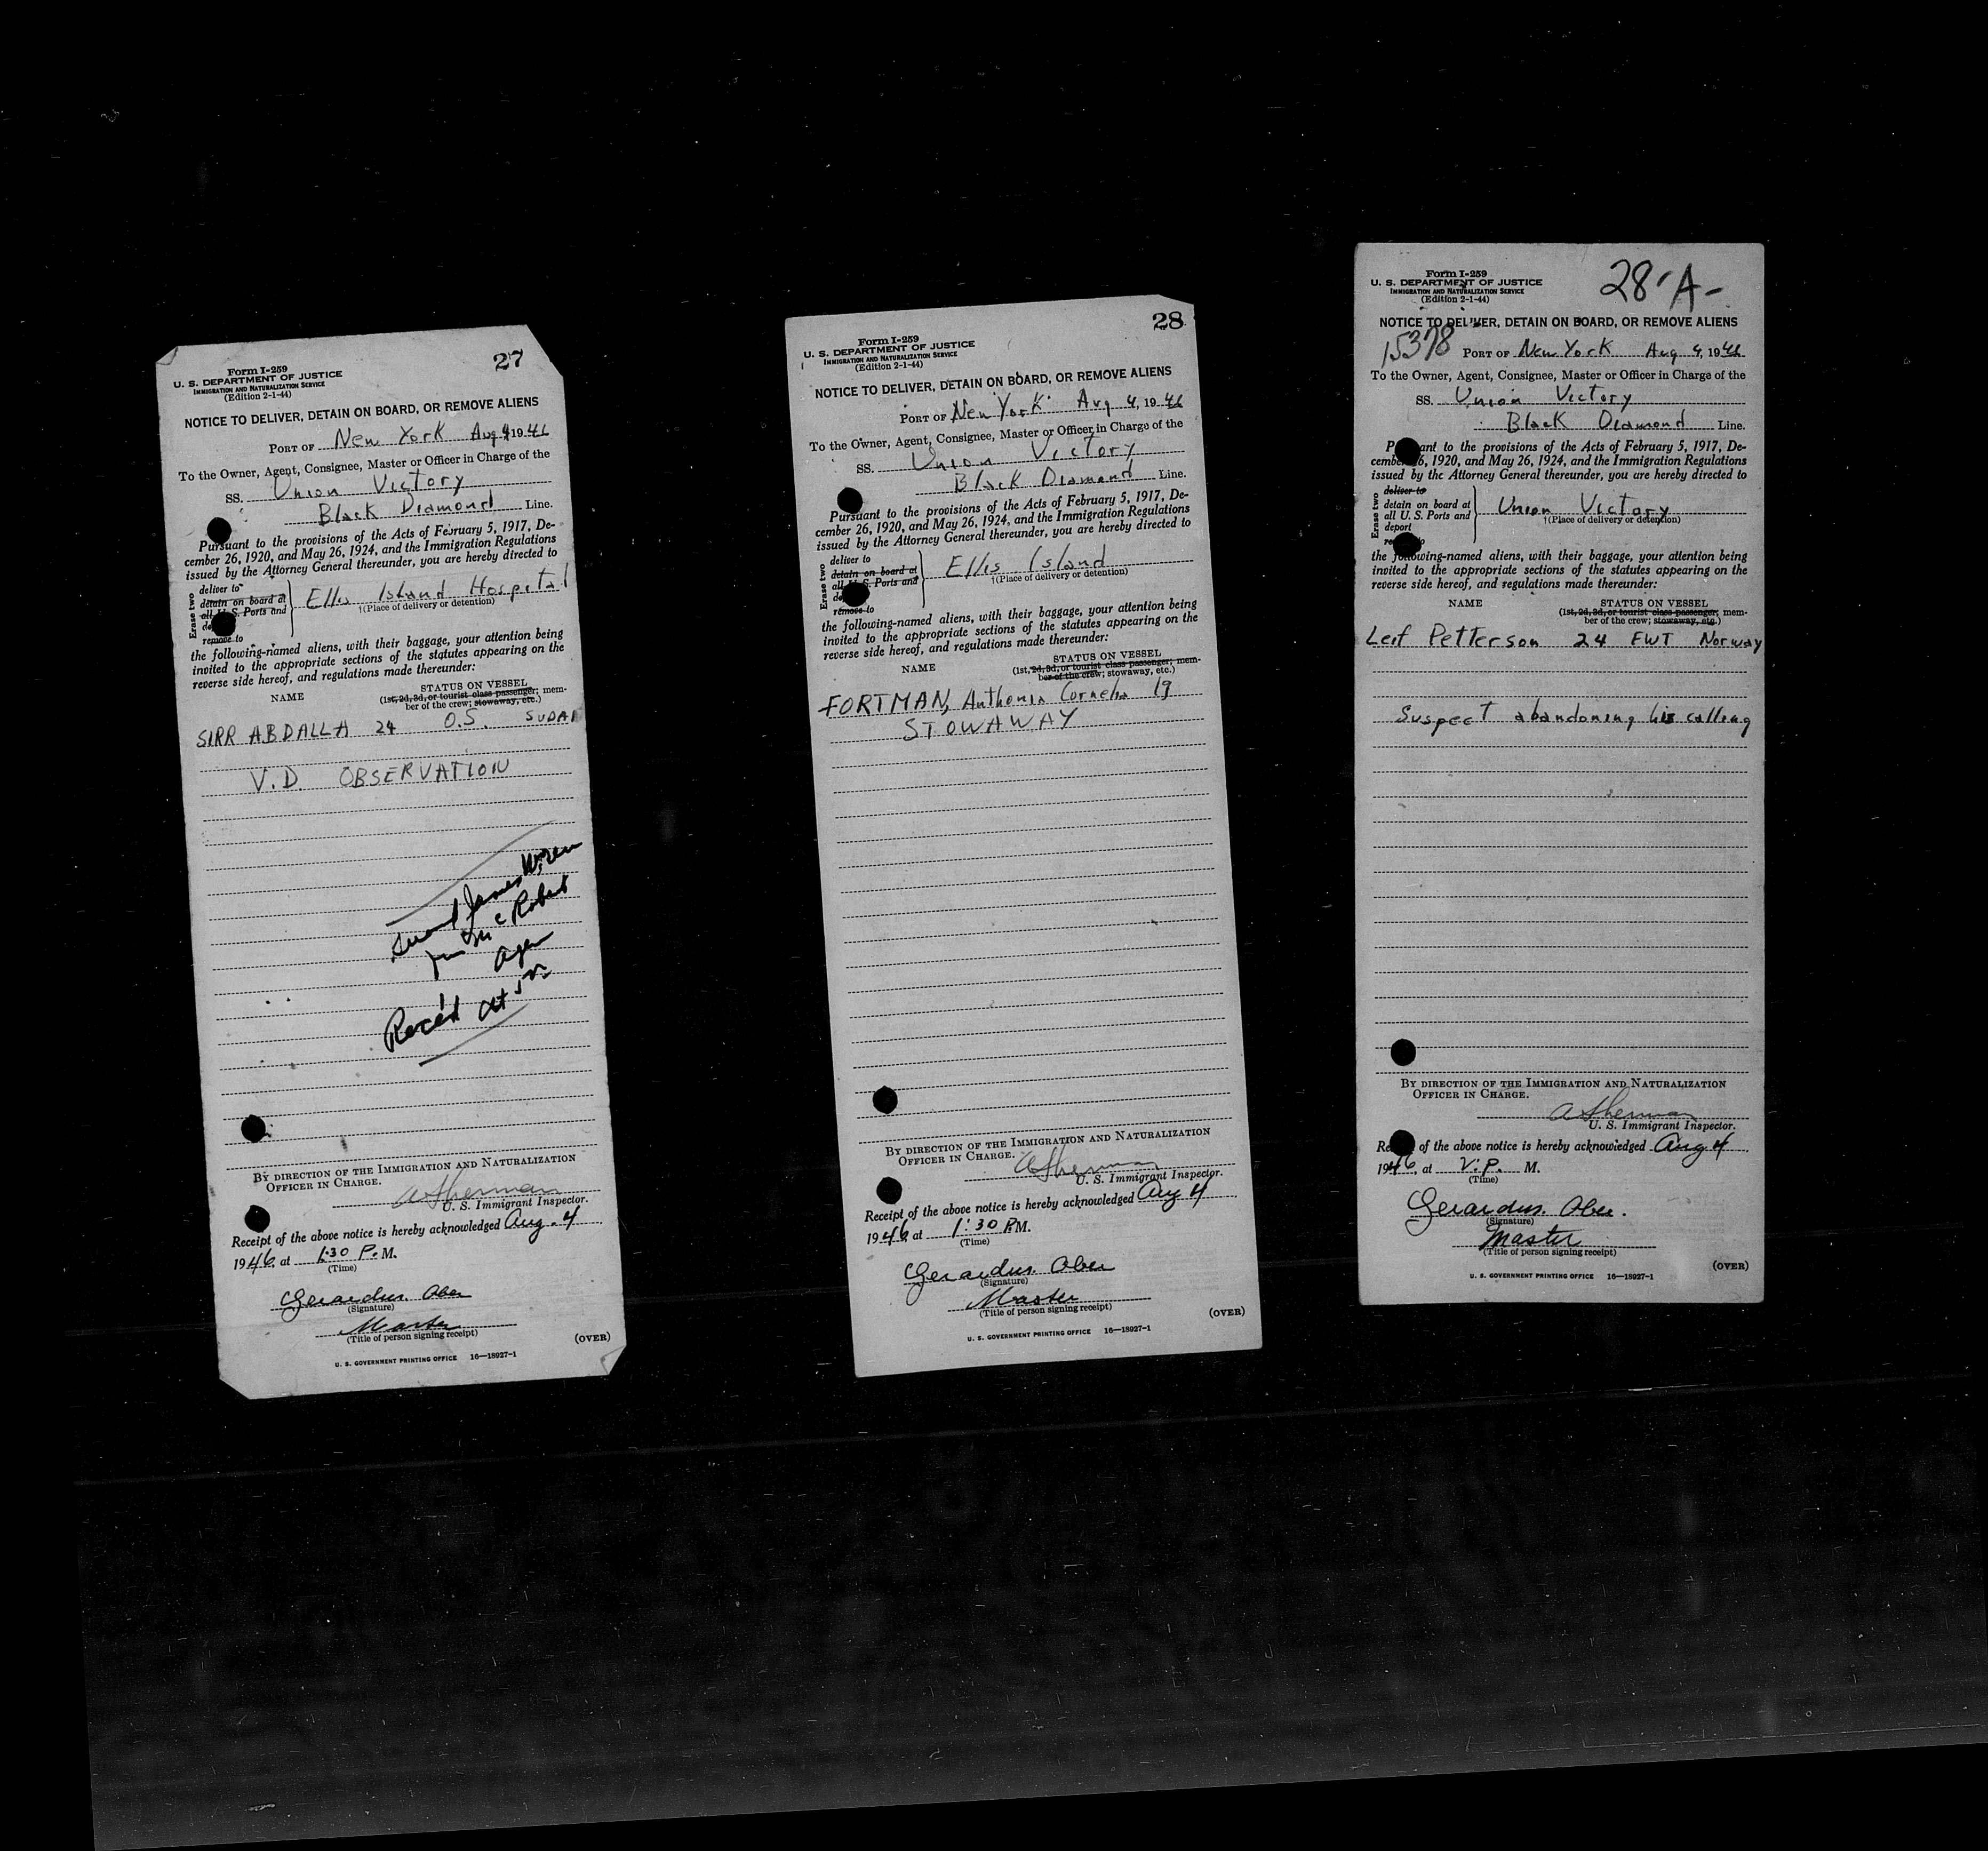 27
Form I-259
U. S. DEPARTMENT OF JUSTICE
IMMIGRATION AND NATURALIZATION SERVICE
(Edition 2-1-44)
NOTICE TO DELIVER, DETAIN ON BOARD, OR REMOVE ALIENS
PORT OF New York Aug 4, 1946
To the Owner, Agent, Consignee, Master or Officer in Charge of the
SS. Union Victory
Black Diamond Line.
Pursuant to the provisions of the Acts of February 5, 1917, De-
cember 26, 1920, and May 26, 1924, and the Immigration Regulations
issued by the Attorney General thereunder, you are hereby directed to
Erase two
deliver to
detain on board at
all U. S. Ports and
remove to
Ellis Island Hospital
†(Place of delivery or detention)
the following-named aliens, with their baggage, your attention being
invited to the appropriate sections of the statutes appearing on the
reverse side hereof, and regulations made thereunder:
NAME STATUS ON VESSEL
(1st, 2d, 3d, or tourist class passenger; mem-
ber of the crew; stowaway, etc.)
SIRR ABDALLA 24 O.S. SUDAN
V.D. OBSERVATION
James
Robert
Rec'd at
BY DIRECTION OF THE IMMIGRATION AND NATURALIZATION
OFFICER IN CHARGE.
A Sherman
U. S. Immigrant Inspector.
Receipt of the above notice is hereby acknowledged Aug. 4
1946, at 1:30 P. M.
(Time)
Gerardus Ober
(Signature)
Master
(Title of person signing receipt)
(OVER)
U. S. GOVERNMENT PRINTING OFFICE 16—18927-1
28
Form I-259
U. S. DEPARTMENT OF JUSTICE
IMMIGRATION AND NATURALIZATION SERVICE
(Edition 2-1-44)
NOTICE TO DELIVER, DETAIN ON BOARD, OR REMOVE ALIENS
PORT OF New York Aug 4, 1946
To the Owner, Agent, Consignee, Master or Officer in Charge of the
SS. Union Victory
Black Diamond Line.
Pursuant to the provisions of the Acts of February 5, 1917, De-
cember 26, 1920, and May 26, 1924, and the Immigration Regulations
issued by the Attorney General thereunder, you are hereby directed to
Erase two
deliver to
detain on board at
all U. S. Ports and
remove to
Ellis Island
†(Place of delivery or detention)
the following-named aliens, with their baggage, your attention being
invited to the appropriate sections of the statutes appearing on the
reverse side hereof, and regulations made thereunder:
NAME STATUS ON VESSEL
(1st, 2d, 3d, or tourist class passenger; mem-
ber of the crew; stowaway, etc.)
FORTMAN, Anthonia Cornelia 19
STOWAWAY
BY DIRECTION OF THE IMMIGRATION AND NATURALIZATION
OFFICER IN CHARGE.
A Sherman
U. S. Immigrant Inspector.
Receipt of the above notice is hereby acknowledged Aug 4
1946, at 1:30 P.M.
(Time)
Gerardus Ober
(Signature)
Master
(Title of person signing receipt)
(OVER)
U. S. GOVERNMENT PRINTING OFFICE 16—18927-1
28-A-
Form I-259
U. S. DEPARTMENT OF JUSTICE
IMMIGRATION AND NATURALIZATION SERVICE
(Edition 2-1-44)
NOTICE TO DELIVER, DETAIN ON BOARD, OR REMOVE ALIENS
15378 PORT OF New York Aug 4, 1946
To the Owner, Agent, Consignee, Master or Officer in Charge of the
SS. Union Victory
Black Diamond Line.
Pursuant to the provisions of the Acts of February 5, 1917, De-
cember 26, 1920, and May 26, 1924, and the Immigration Regulations
issued by the Attorney General thereunder, you are hereby directed to
Erase two
deliver to
detain on board at
all U. S. Ports and
deport
remove to
Union Victory
†(Place of delivery or detention)
the following-named aliens, with their baggage, your attention being
invited to the appropriate sections of the statutes appearing on the
reverse side hereof, and regulations made thereunder:
NAME STATUS ON VESSEL
(1st, 2d, 3d, or tourist class passenger; mem-
ber of the crew; stowaway, etc.)
Leif Petterson 24 FWT Norway
Suspect abandoning his calling
BY DIRECTION OF THE IMMIGRATION AND NATURALIZATION
OFFICER IN CHARGE.
A Sherman
U. S. Immigrant Inspector.
Receipt of the above notice is hereby acknowledged Aug 4
1946, at 2. P. M.
(Time)
Gerardus Ober.
(Signature)
Master
(Title of person signing receipt)
(OVER)
U. S. GOVERNMENT PRINTING OFFICE 16—18927-1